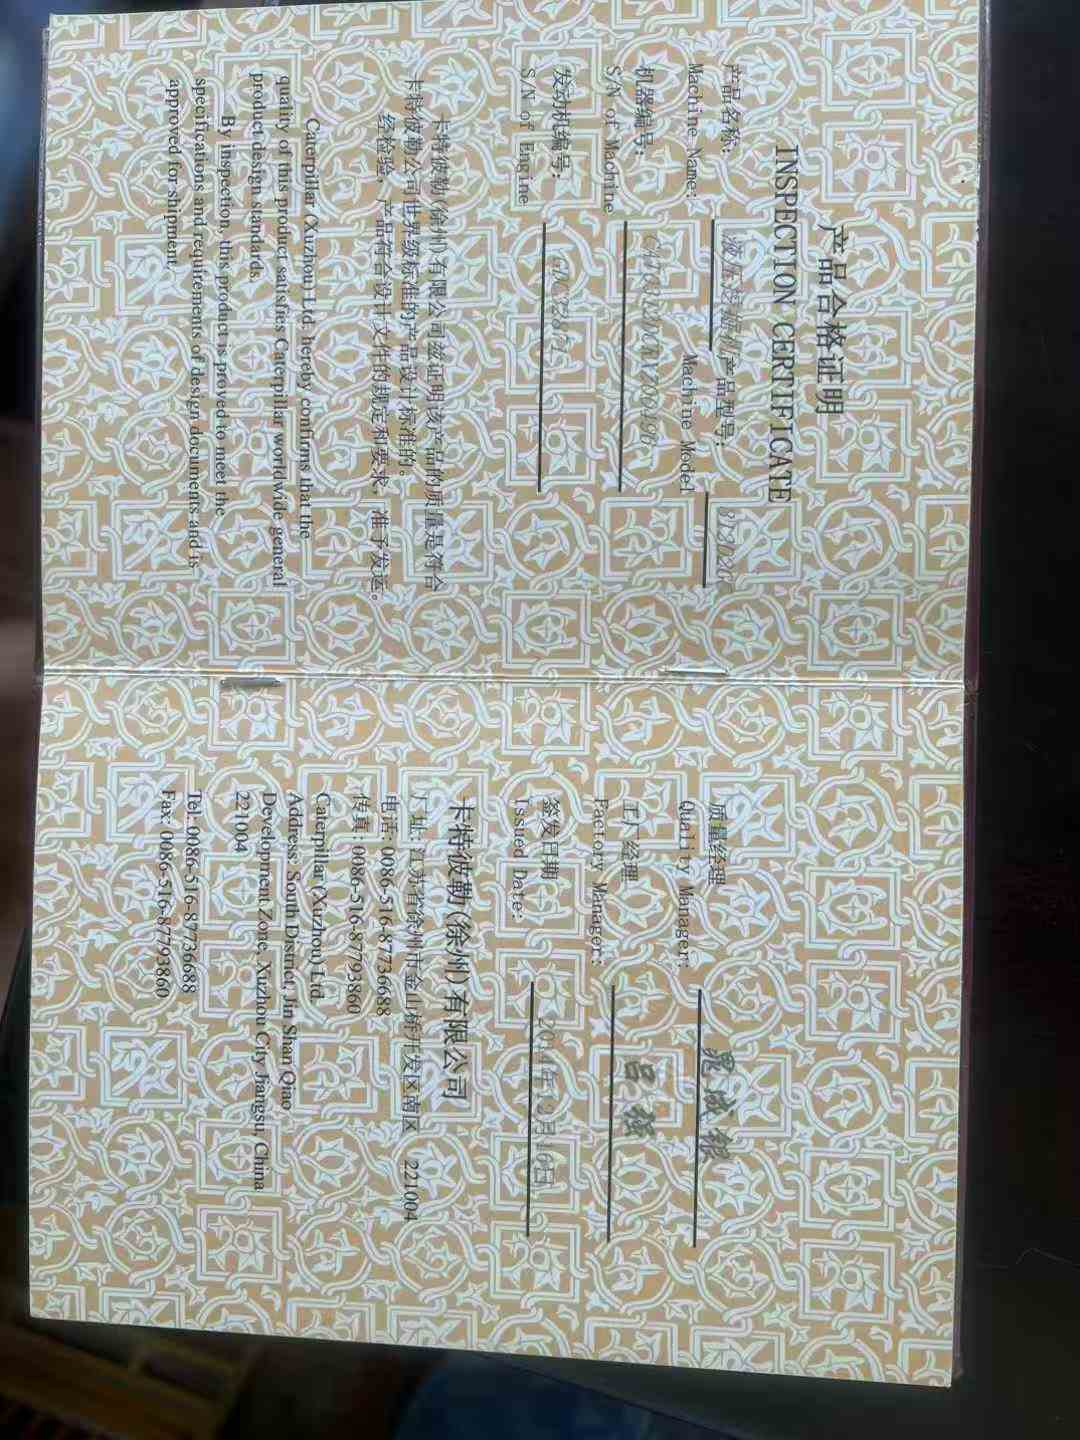 产品合格证明
INSPECTION CERTIFICATE
产品名称: 液压挖掘机 产品型号:
Machine Name: Machine Model
机器编号:
S/N of Machine
发动机编号:
S/N of Engine
卡特彼勒(徐州)有限公司兹证明该产品的质量是符合
卡特彼勒公司世界级标准的产品设计标准的。
经检验，产品符合设计文件的规定和要求，准予发运。
Caterpillar (Xuzhou) Ltd. hereby confirms that the
quality of this product satisfies Caterpillar worldwide general
product design standards.
By inspection, this product is proved to meet the
specifications and requirements of design documents and is
approved for shipment.
质量经理
Quality Manager:
工厂经理 吕强
Factory Manager:
签发日期 2014年3月16日
Issued Date:
卡特彼勒(徐州)有限公司
厂址: 江苏省徐州市金山桥开发区南区 221004
电话: 0086-516-87736688
传真: 0086-516-87793860
Caterpillar (Xuzhou) Ltd.
Address: South District, Jin Shan Qiao
Development Zone, Xuzhou City Jiangsu, China
221004
Tel: 0086-516-87736688
Fax: 0086-516-87793860